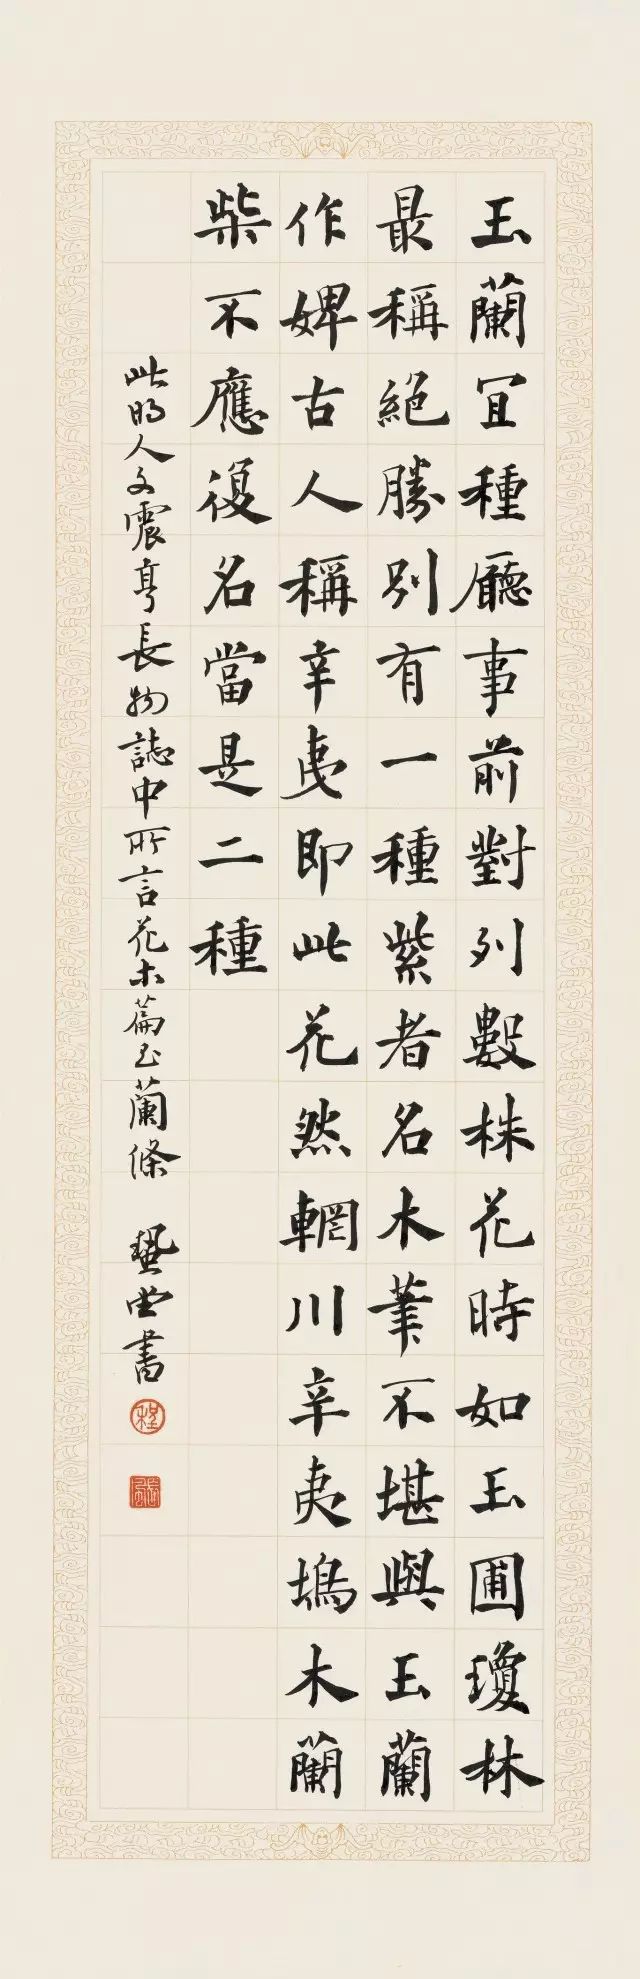 玉蘭宜種廳事前對列數株花時如玉圃瓊林
最稱絕勝別有一種紫者名木筆不堪與玉蘭
作婢古人稱辛夷即此花然輞川辛夷塢木蘭
柴不應復名當是二種
此明人文震亨長物誌中所言花木篇玉蘭條 曲書
程